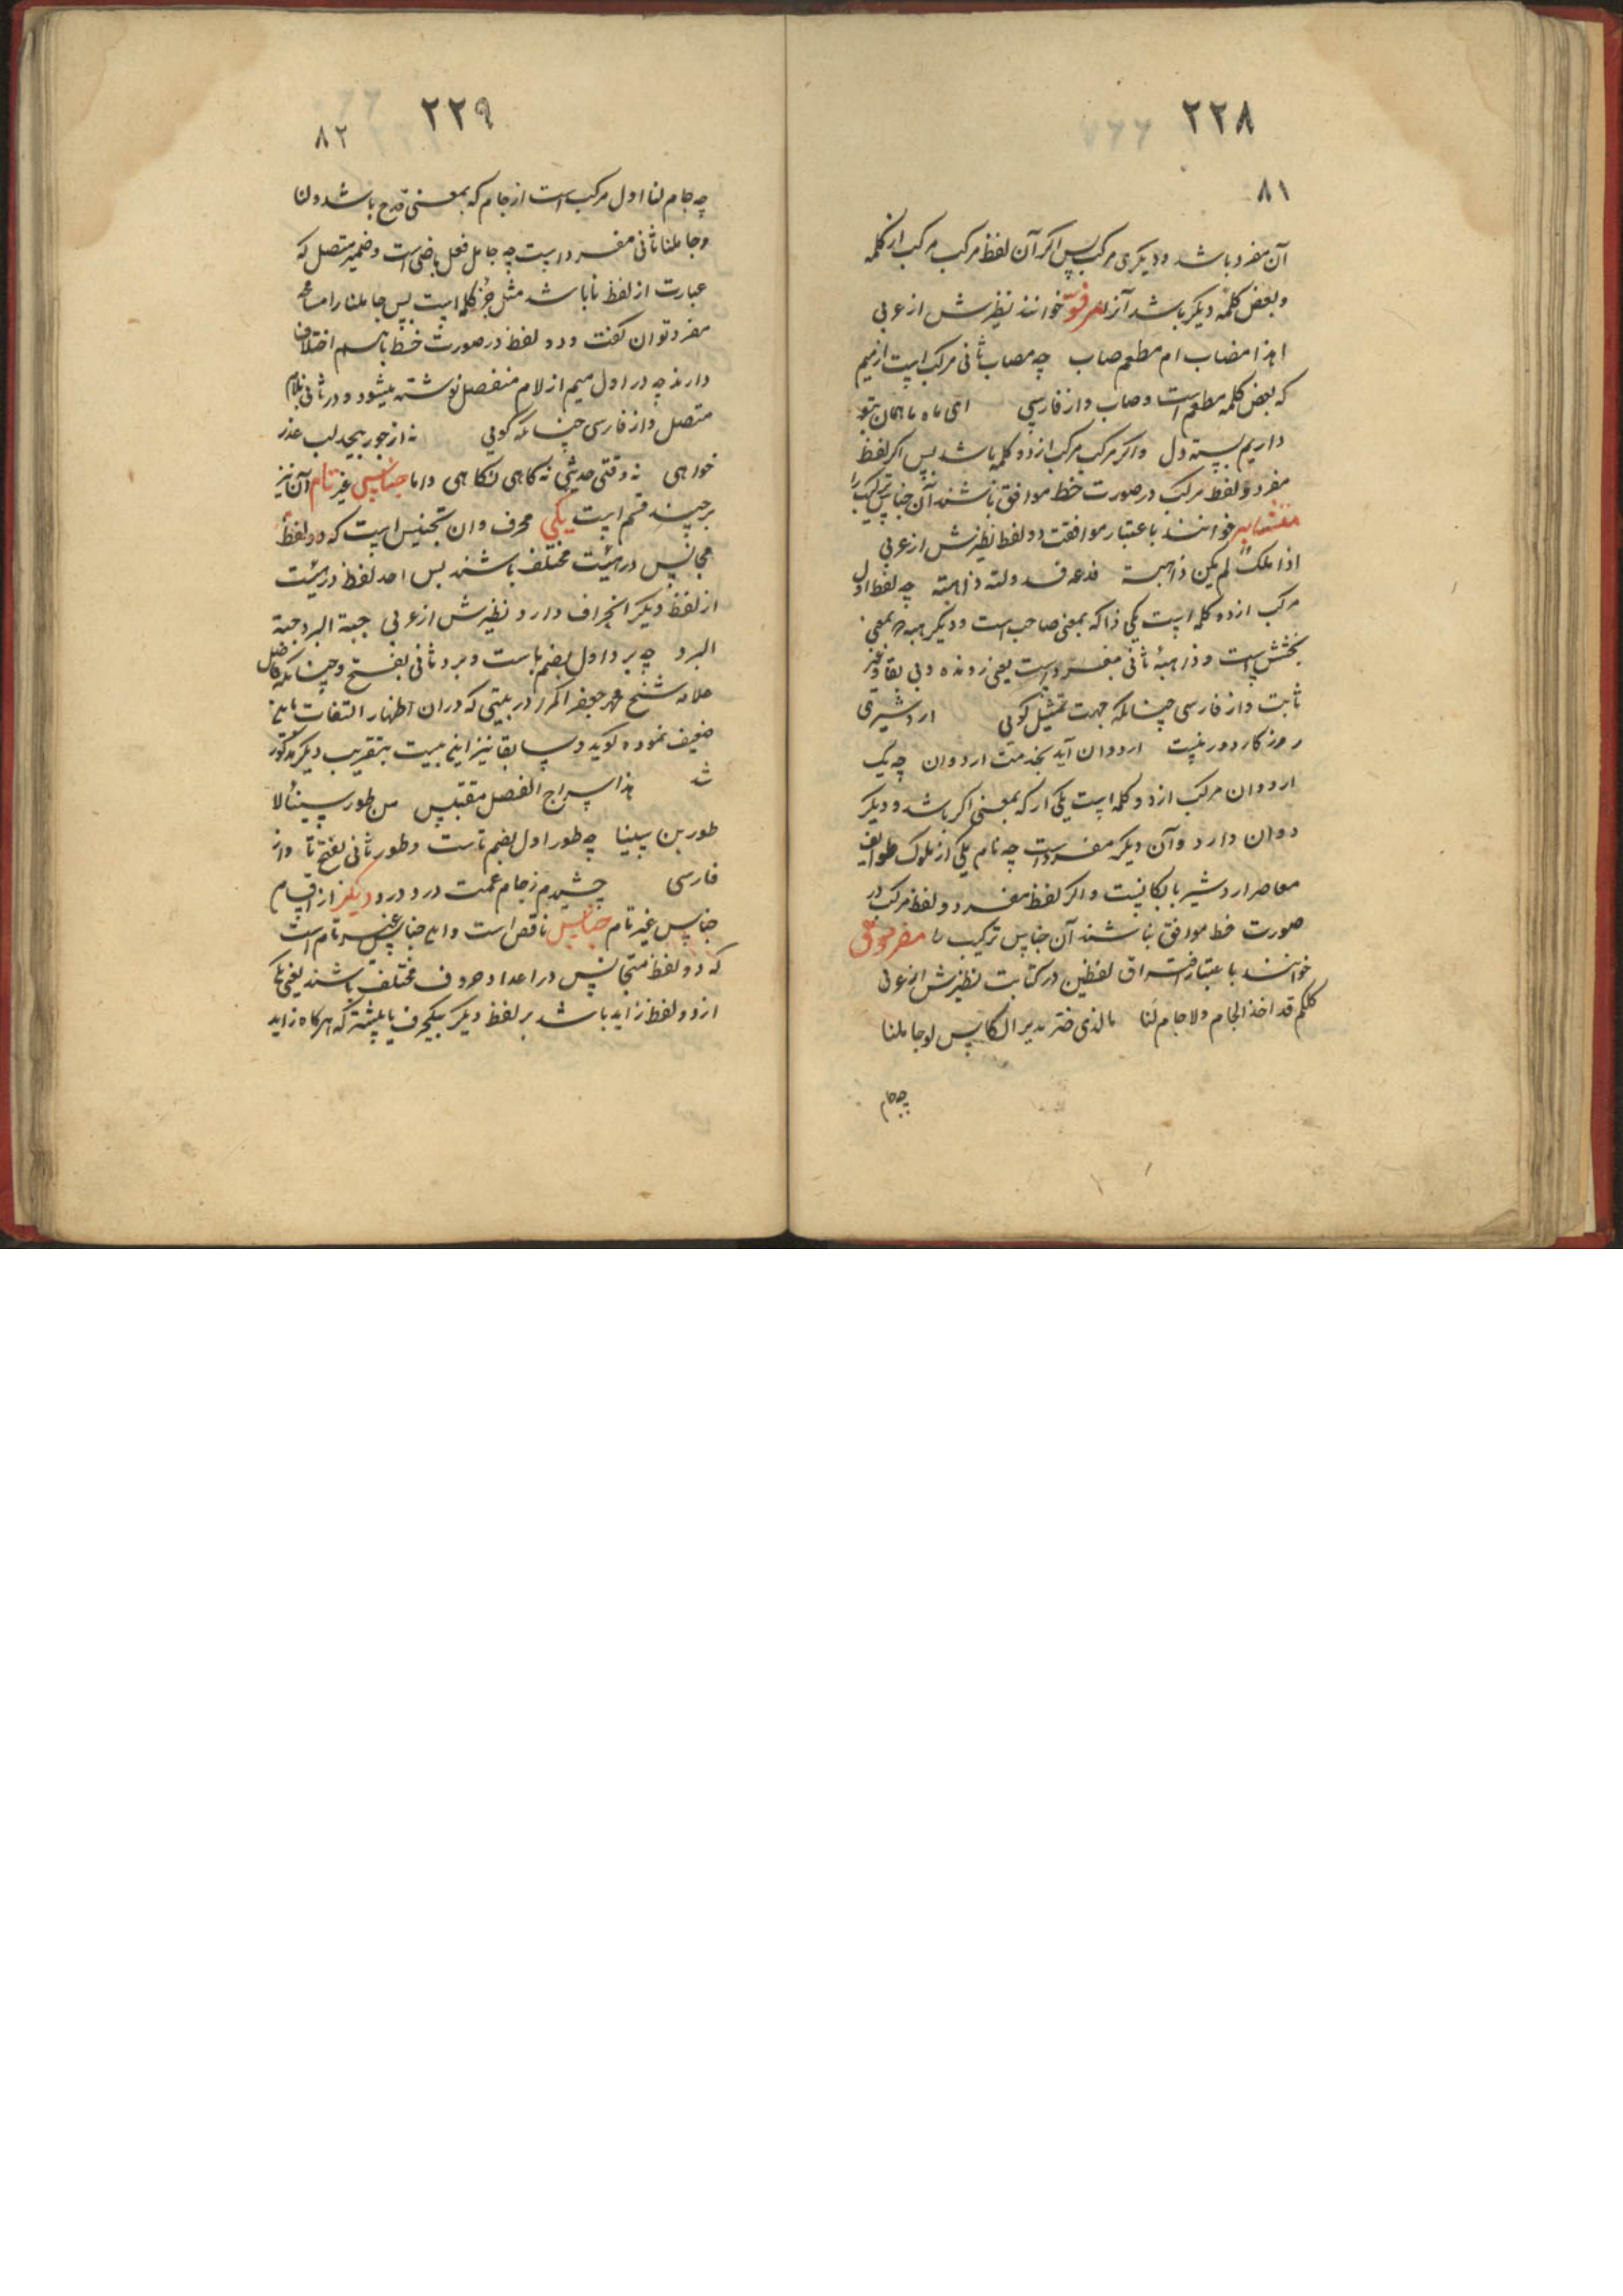 ٢٢٨
٨١
آن مفرد باشد و دیکری مرکب پس اکر آن لفظ مرکب مرکب از کلمه
و بعض کلمه دیکر باشد آنرا مرفو خوانند نظیرش از عربی
اهذا مصاب ام مطعم صاب چه مصاب ثانی مرکب است از میم
که بعض کلمه مطعم است و صاب و از فارسی ای ماه ماهمان بتو
داریم بسته دل و اکر مرکب مرکب از دو کلمه باشد پس اکر لفظ
مفرد و لفظ مرکب در صورت خط موافق باشند آن جناس ترکیب را
متشابه خوانند باعتبار موافقت دو لفظ نظیرش از عربی
اذا ملک لم یکن ذا هبة فدعه فدولته ذاهبة چه لفظ اول
مرکب از دو کلمه است یکی ذا که بمعنی صاحب است و دیکر هبه بمعنی
بخشش است و ذاهبهٔ ثانی مفرد است یعنی رونده و بی بقا و غیر
ثابت و از فارسی چنانکه جهت تمثیل کویی اردشیری
روزکار دور نیست اردوان آید بخدمت اردوان چه یک
اردوان مرکب از دو کلمه است یکی ار که بمعنی اکر باشد و دیکر
دوان دارد و آن دیکر مفرد است چه نام یکی از ملوک طوایف
معاصر اردشیر بابکانیست و اکر لفظ مفرد و لفظ مرکب در
صورت خط موافق نباشند آن جناس ترکیب را مفروق
خوانند باعتبار افتراق لفظین در کتابت نظیرش از عربی
کلکم قد اخذ الجام ولا جام لنا ما الذی ضر مدیر الکاس لو جاملنا
چه جام
٢٢٩
٨٢
چه جام لنا اول مرکب است از جام که بمعنی قدح باشد و لنا
و جاملنا ثانی مفرد است چه جامل فعل ماضی است و ضمیر متصل که
عبارت از لفظ نا باشد مثل جزء کلمه است پس جاملنا را مسامحه
مفرد توان کفت و دو لفظ در صورت خط باهم اختلاف
دارند چه در اول میم از لام منفصل نوشته میشود و در ثانی بلام
متصل و از فارسی چنانکه کویی نه از جور بیحد لب عذر
خواهی نه وقتی حدیثی نه کاهی نکاهی و اما جناسی غیر تام آن نیز
بر چند قسم است یکی محرف و ان تجنیس است که دو لفظ
مجانس در هیئت مختلف باشند پس احد لفظ در هیئت
از لفظ دیکر انحراف دارد نظیرش از عربی جبة البرد جنة
البرد چه برد اول بضم باست و برد ثانی بفتح و چنانکه فاضل
علامه شیخ محمد جعفر اکمر در بیتی که در ان اظهار التفات باین
ضعیف نموده کوید و سابقا نیز این بیت بتقریب دیکر مذکور
شد هذا سراج الفضل مقتبس من طور سینا لا
طور بن سینا چه طور اول بضم تاست و طور ثانی بفتح تا و از
فارسی چشیدم ز جام غمت درد درد دیکر از اقسام
جناس غیر تام جناس ناقص است و این جناس غیر تام است
که دو لفظ متجانس در اعداد حروف مختلف باشند یعنی یک
از دو لفظ زاید باشد بر لفظ دیکر بیکحرف یا بیشتر که هرکاه زاید